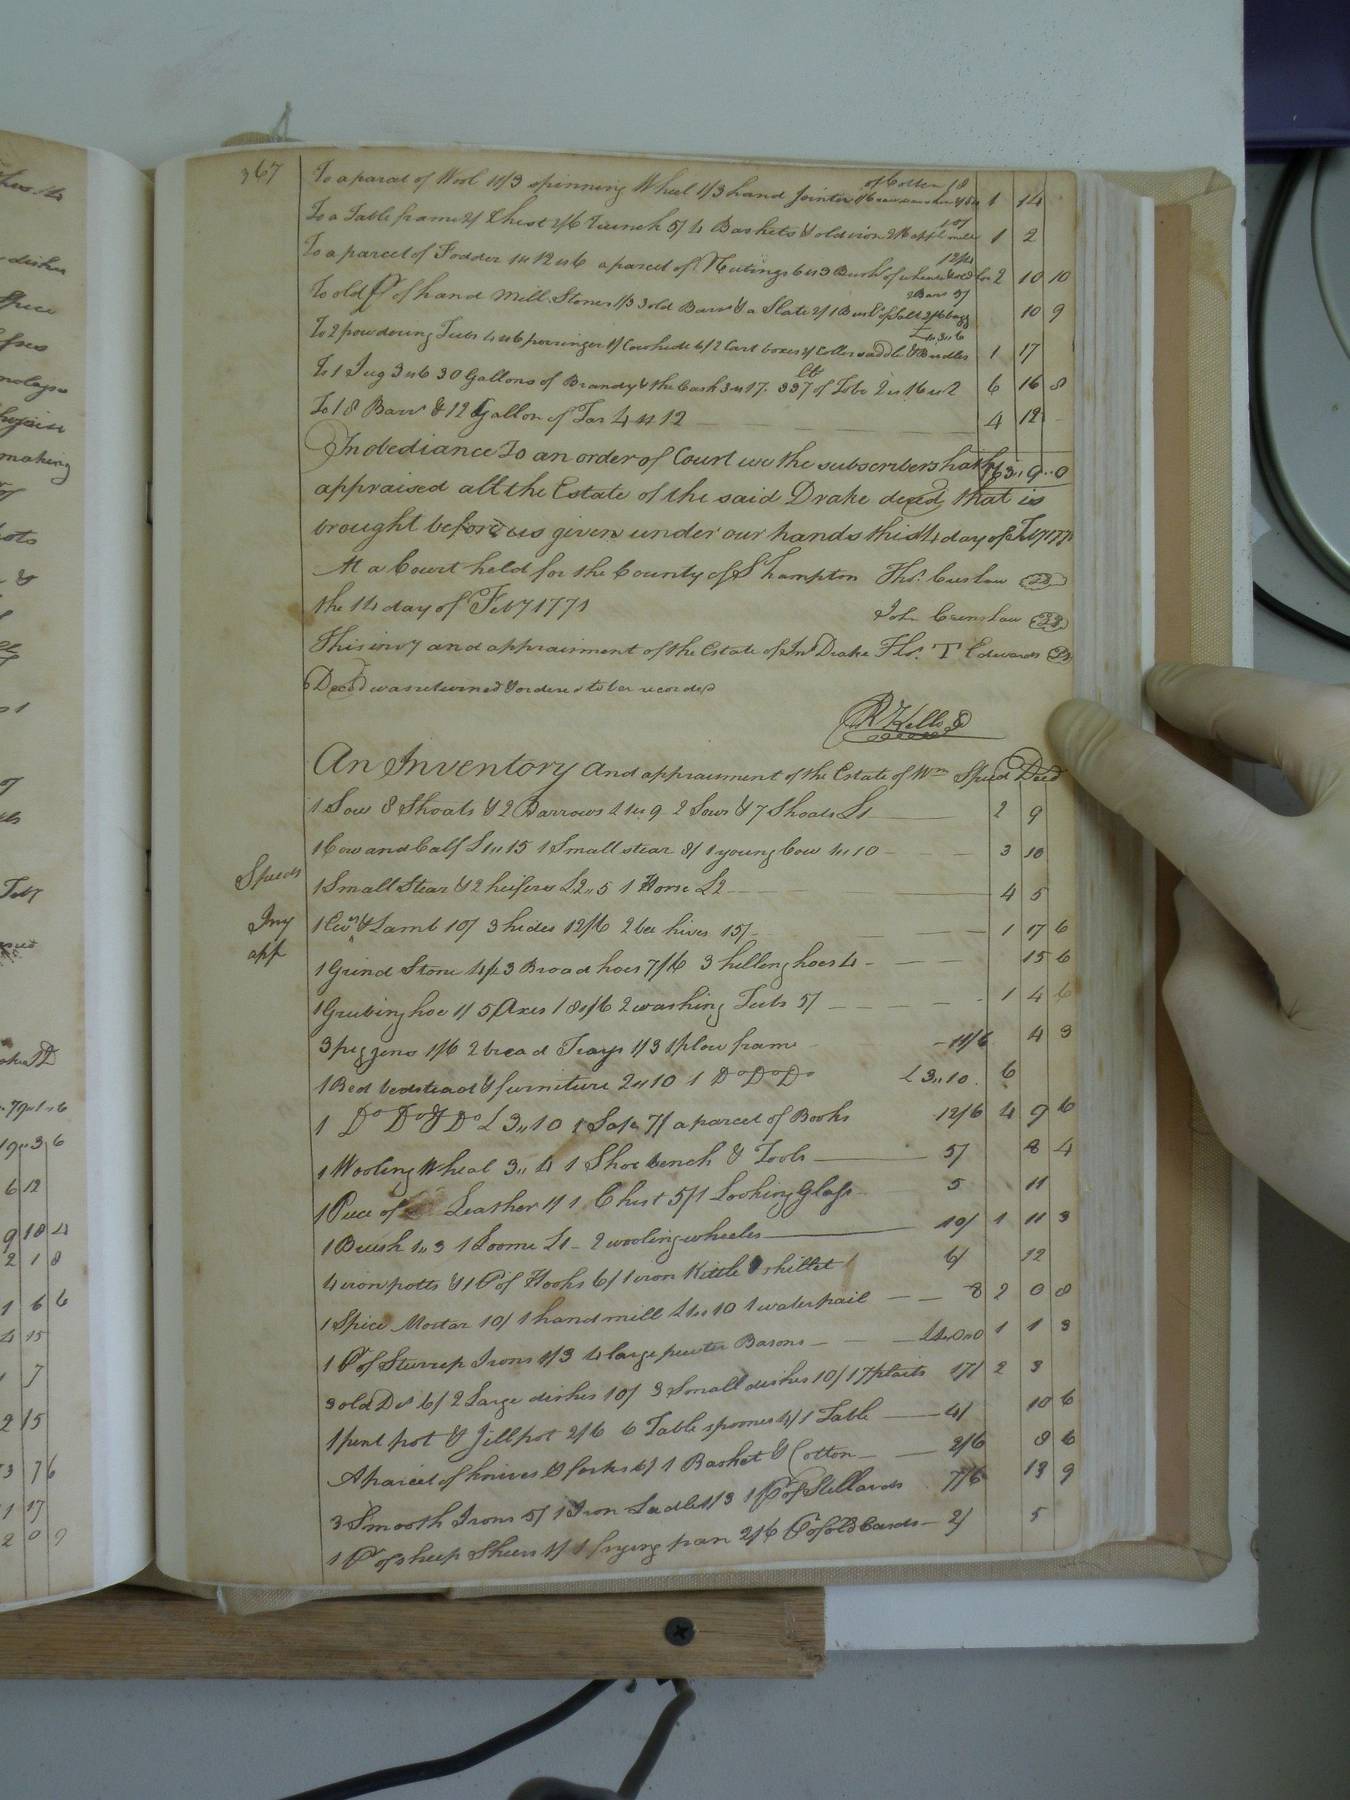 367
To a parcel of Wool 11/3 spinning Wheel 1/3 hand Jointer 1 14
To a Table frame 2/ Chest 2/6 Trunck 5/ 4 Baskets & old iron 1 2
To a parcel of Fodder 1"12"6 a parcel of 6"3 Bush of wheat 2 10 10
To old Pr of hand Mill Stones 1/3 3 old Barr & a Slate 2/ 1 Bush of Salt 10 9
To 2 powdering Tubs 4"6 porringer 1/ Cowhide 6/ 2 Cart boxes 2/ Coller saddle & Bridles 1 17
To 1 Jug 3"6 30 Gallons of Brandy & the Cash 3"17. 337 lb of Tobo 2"16"2 6 16 8
To 18 Barr & 12 Gallon of Tar 4"12 4 12
In obediance To an order of Court we the subscribers hath 163.9..0
appraised all the Estate of the said Drake decd that is
brought before us given under our hands this 14 day of Feby 177
At a Court held for the County of S hampton Thos.
the 14 day of Feby 1771 Joh. Crenshaw
This invy and appraisment of the Estate of Jno Drake Thos. T Edwards
Decd was returned & ordered to be recorded
R Kello
An Inventory and appraisment of the Estate of Wm Speed Decd
Speeds Invy app
1 Sow 8 Shoats & 2 Barrows 1"9 2 Sows & 7 Shoats £1 2 9
1 Cow and Calf £1"15 1 Small stear 8/ 1 young Cow 1"10 3 10
1 Small Stear & 2 heifers £2"5 1 Horse £2 4 5
1 Ewe & Lamb 10/ 3 hides 12/6 2 bee hives 15/ 1 17 6
1 Grind Stone 4/ 3 Broad hoes 7/6 3 hilling hoes 4 15 6
1 Grubing hoe 1/ 5 Axes 18/6 2 washing Tubs 5/ 1 4 6
3 piggens 1/6 2 bread Trays 1/3 1 plow frame 1/6 4 3
1 Bed bedstead & furniture 2"10 1 Do Do Do £3"10 6
1 Do Do & Do £3"10 1 Safe 7/ a parcel of Books 12/6 4 9 6
1 Wooling Wheal 3"4 1 Shoe bench & Tools 5/ 8 4
1 Piece of Leather 1/ 1 Chest 5/ 1 Looking Glass 5 11
1 Brush 1"3 1 Loome £1 2 wooling wheeles 10/ 1 11 3
4 iron potts & 1 Pr of Hooks 6/ 1 iron Kittle & skillet 6/ 12
1 Spice Mortar 10/ 1 hand mill £1"10 1 water pail 8 2 0 8
1 Pr of Sturrep Irons 1/3 4 large pewter Basons £1"0"0 1 1 3
3 old Do 6/ 2 Large dishes 10/ 3 Small dishes 10/ 17 plaits 17/ 2 3
1 pint pot & Jillpot 2/6 6 Table spoones 4/ 1 Table 4/ 10 6
A parcel of knives & forks 6/ 1 Basket & Cotton 2/6 8 6
3 Smooth Irons 5/ 1 Iron Ladle 1/3 1 Pr of Stillards 7/6 13 9
1 Pr of sheep Shears 1/ 1 frying pan 2/6 Pr of old Cards 2/ 5